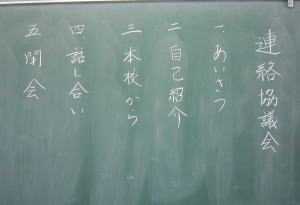 連絡協議会
一、あいさつ
二 自己紹介
三 本校から
四 話し合い
五 閉会